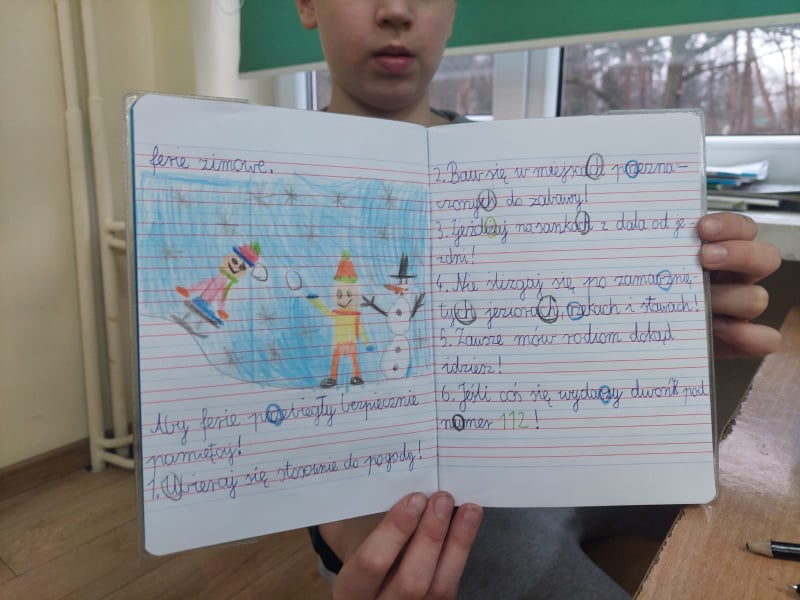 ferie zimowe.
Aby ferie przebiegły bezpiecznie
pamiętaj!
1. Ubieraj się stosownie do pogody!
2. Baw się w miejscach przezna-
czonych do zabawy!
3. Zjeżdżaj na sankach z dala od je-
zdni!
4. Nie ślizgaj się po zamarznię-
tych jeziorach, rzekach i stawach!
5. Zawsze mów rodzicom dokąd
idziesz!
6. Jeśli coś się wydarzy dzwoń pod
numer 112!